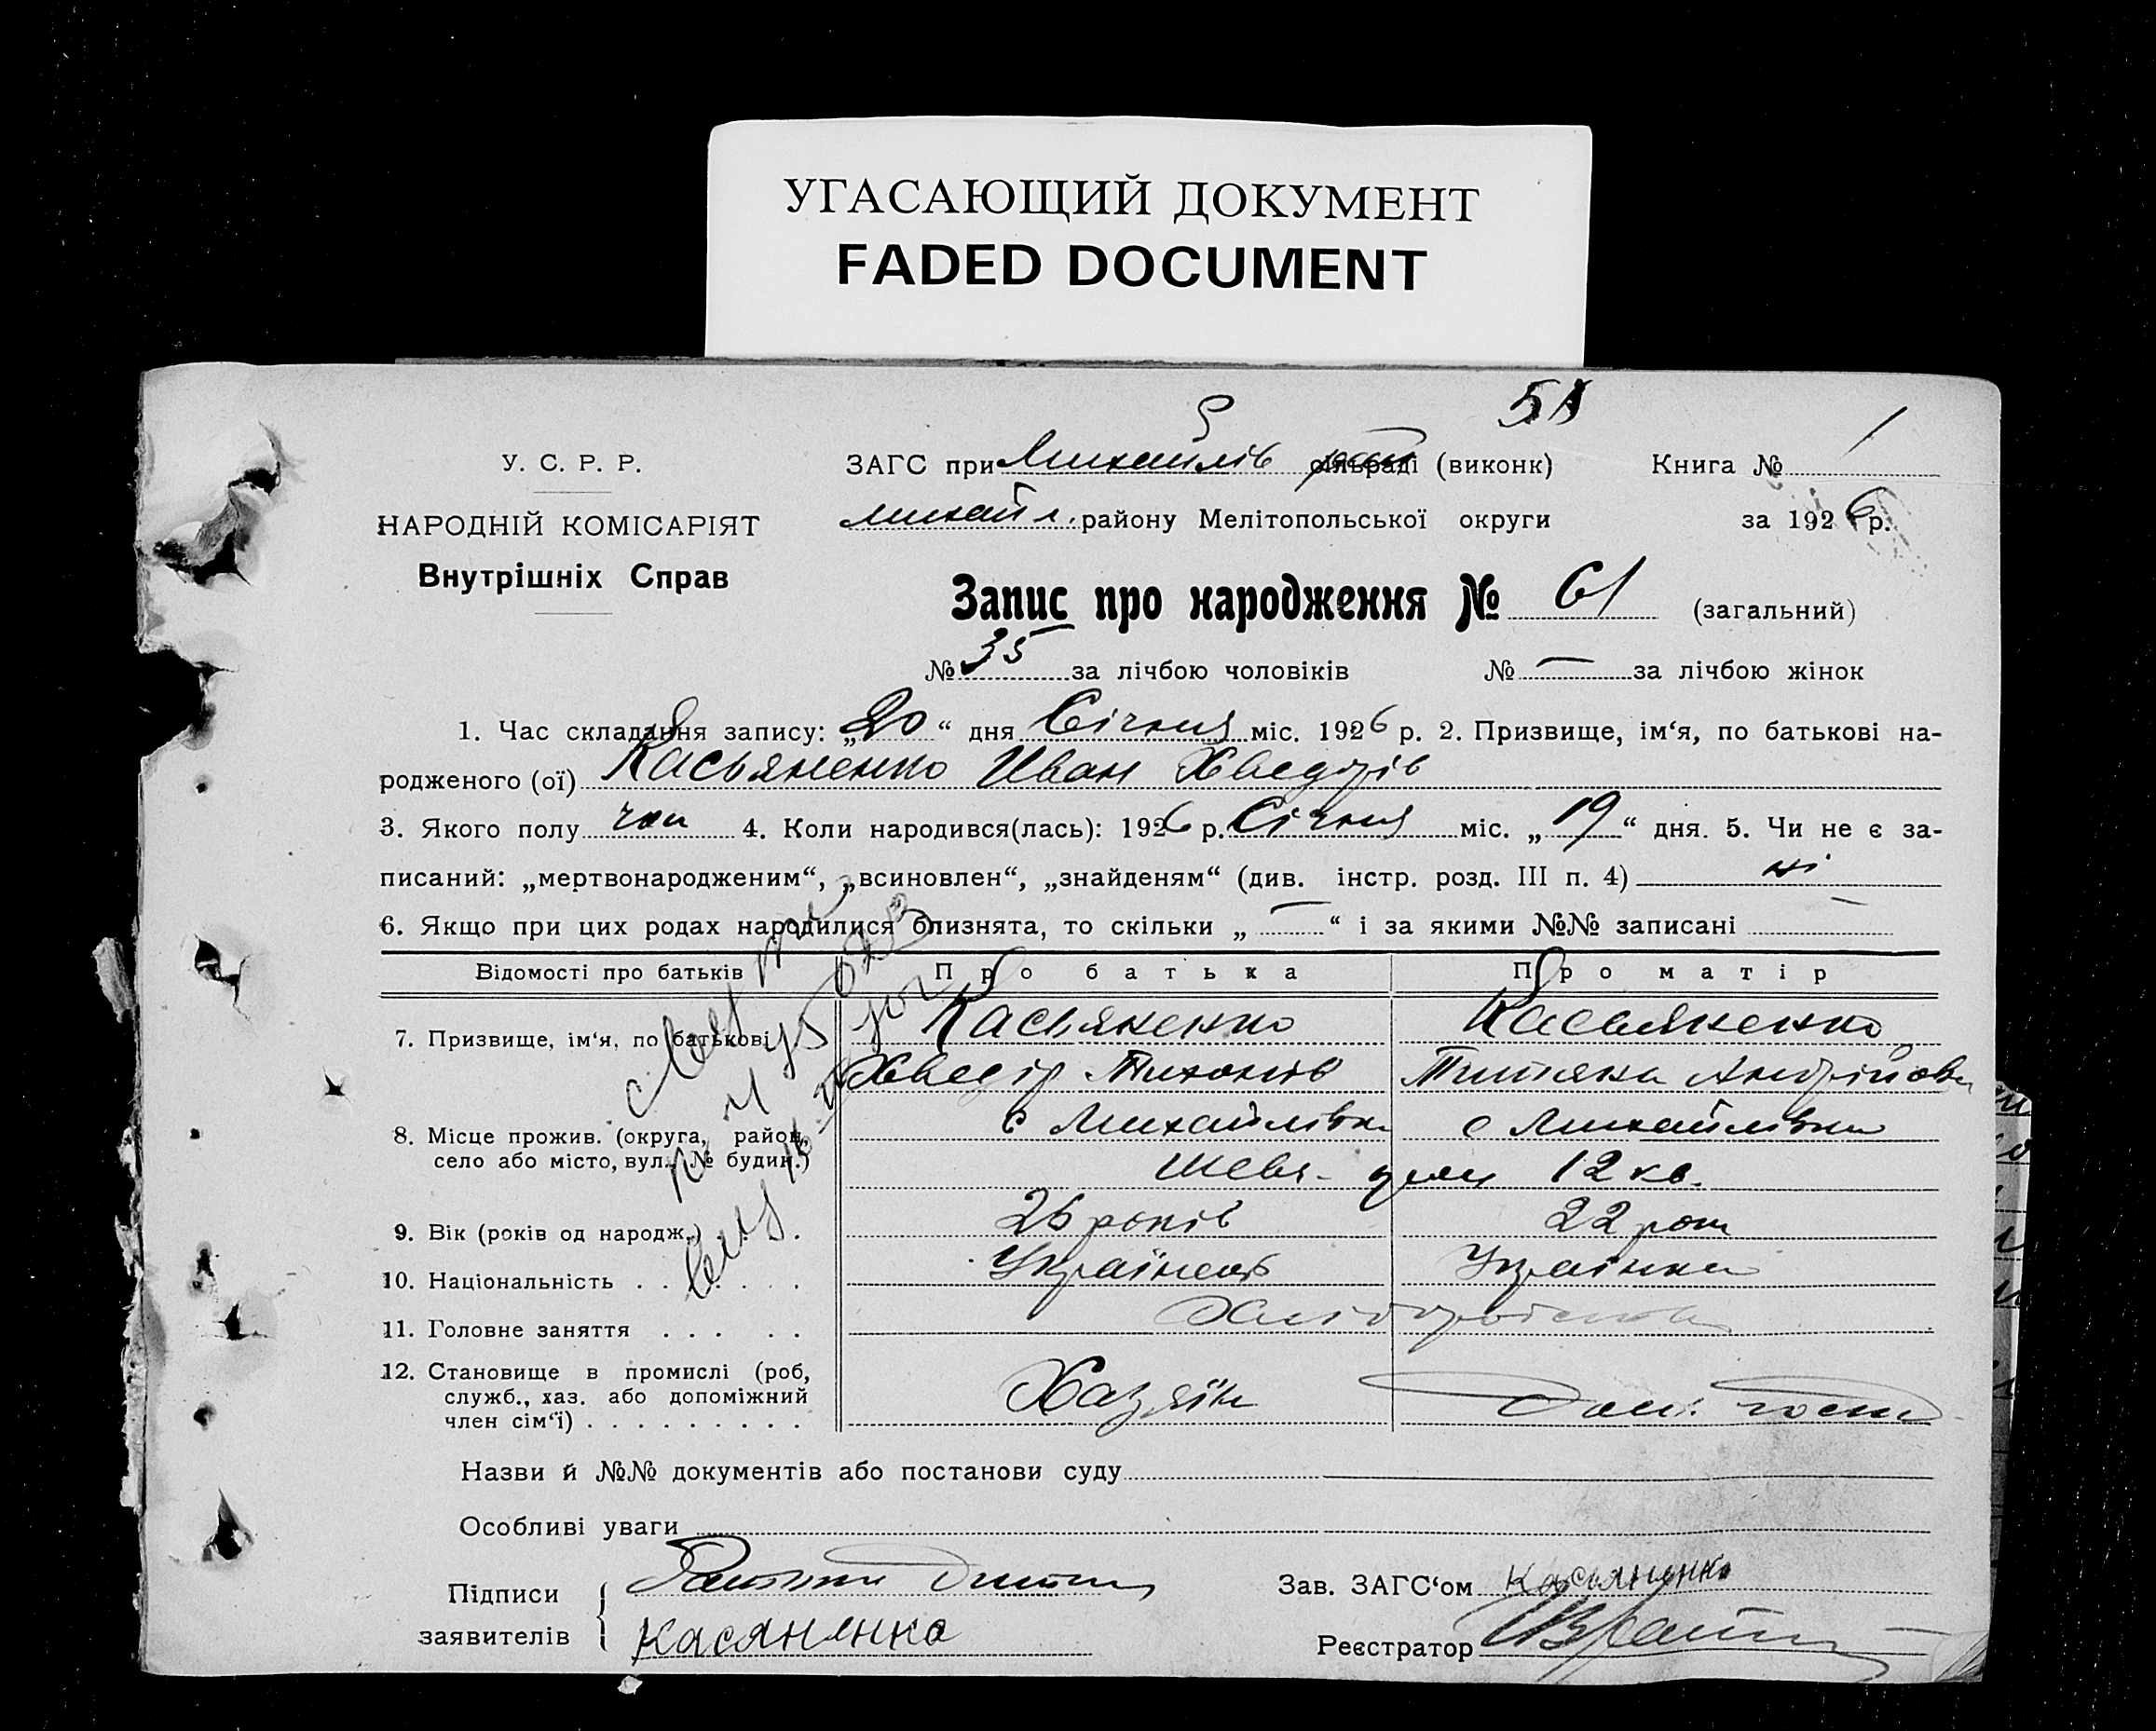 УГАСАЮЩИЙ ДОКУМЕНТ
FADED DOCUMENT
51
У. С. Р. Р.
НАРОДНІЙ КОМІСАРІЯТ
Внутрішніх Справ
ЗАГС при Михайлів сільраді (виконк)
Книга № 1
Михайл. району Мелітопольської округи
за 1926 р.
Запис про народження № 61 (загальний)
№ 35 за лічбою чоловіків № — за лічбою жінок
1. Час складання запису: „20“ дня Січня міс. 1926 р. 2. Призвище, ім‘я, по батькові на-
родженого (ої) Касьяненко Иван Хведорів
3. Якого полу чол 4. Коли народився(лась): 1926 р. Січня міс. „19“ дня. 5. Чи не є за-
писаний: „мертвонародженим“, „всиновлен“, „знайденям“ (див. інстр. розд. III п. 4) ні
6. Якщо при цих родах народилися близнята, то скільки „—“ і за якими №№ записані —
Відомості про батьків Про батька Про матір
7. Призвище, ім‘я, по батькові Касьяненко Касьяненко
Хведір Тихонів Титяна Андрійовн
8. Місце прожив. (округа, район, село або місто, вул., № будин.) с Михайлівка с Михайлівка
12 кв.
9. Вік (років од народж.) 26 років 22 рок
10. Національність . . . . . . Українець Українка
11. Головне заняття . . . . .
12. Становище в промислі (роб, служб., хаз. або допоміжний член сім‘ї) . . . . . . . . . Хазяїн
Назви й №№ документів або постанови суду
Особливі уваги
Підписи
заявителів
Касяненко
Зав. ЗАГС‘ом Касьяненко
Реєстратор